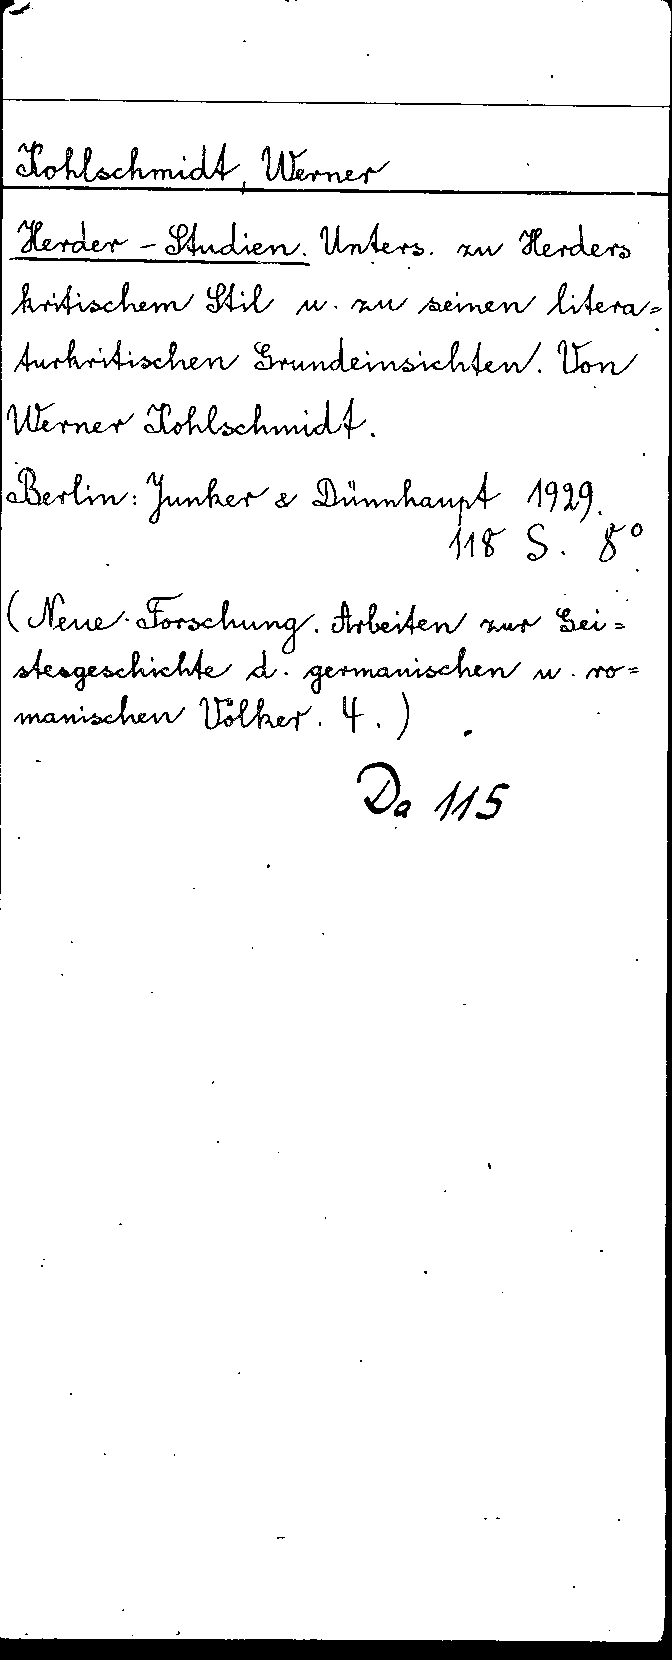 Kohlschmidt, Werner
Herder - Studien. Unters. zu Herders
kritischem Stil u. zu seinen litera=
turkritischen Grundeinsichten. Von
Werner Kohlschmidt.
Berlin: Junker & Dünnhaupt 1929.
118 S. 8°
(Neue Forschung. Arbeiten zur Gei=
stesgeschichte d. germanischen u. ro=
manischen Völker. 4.)
Da 115